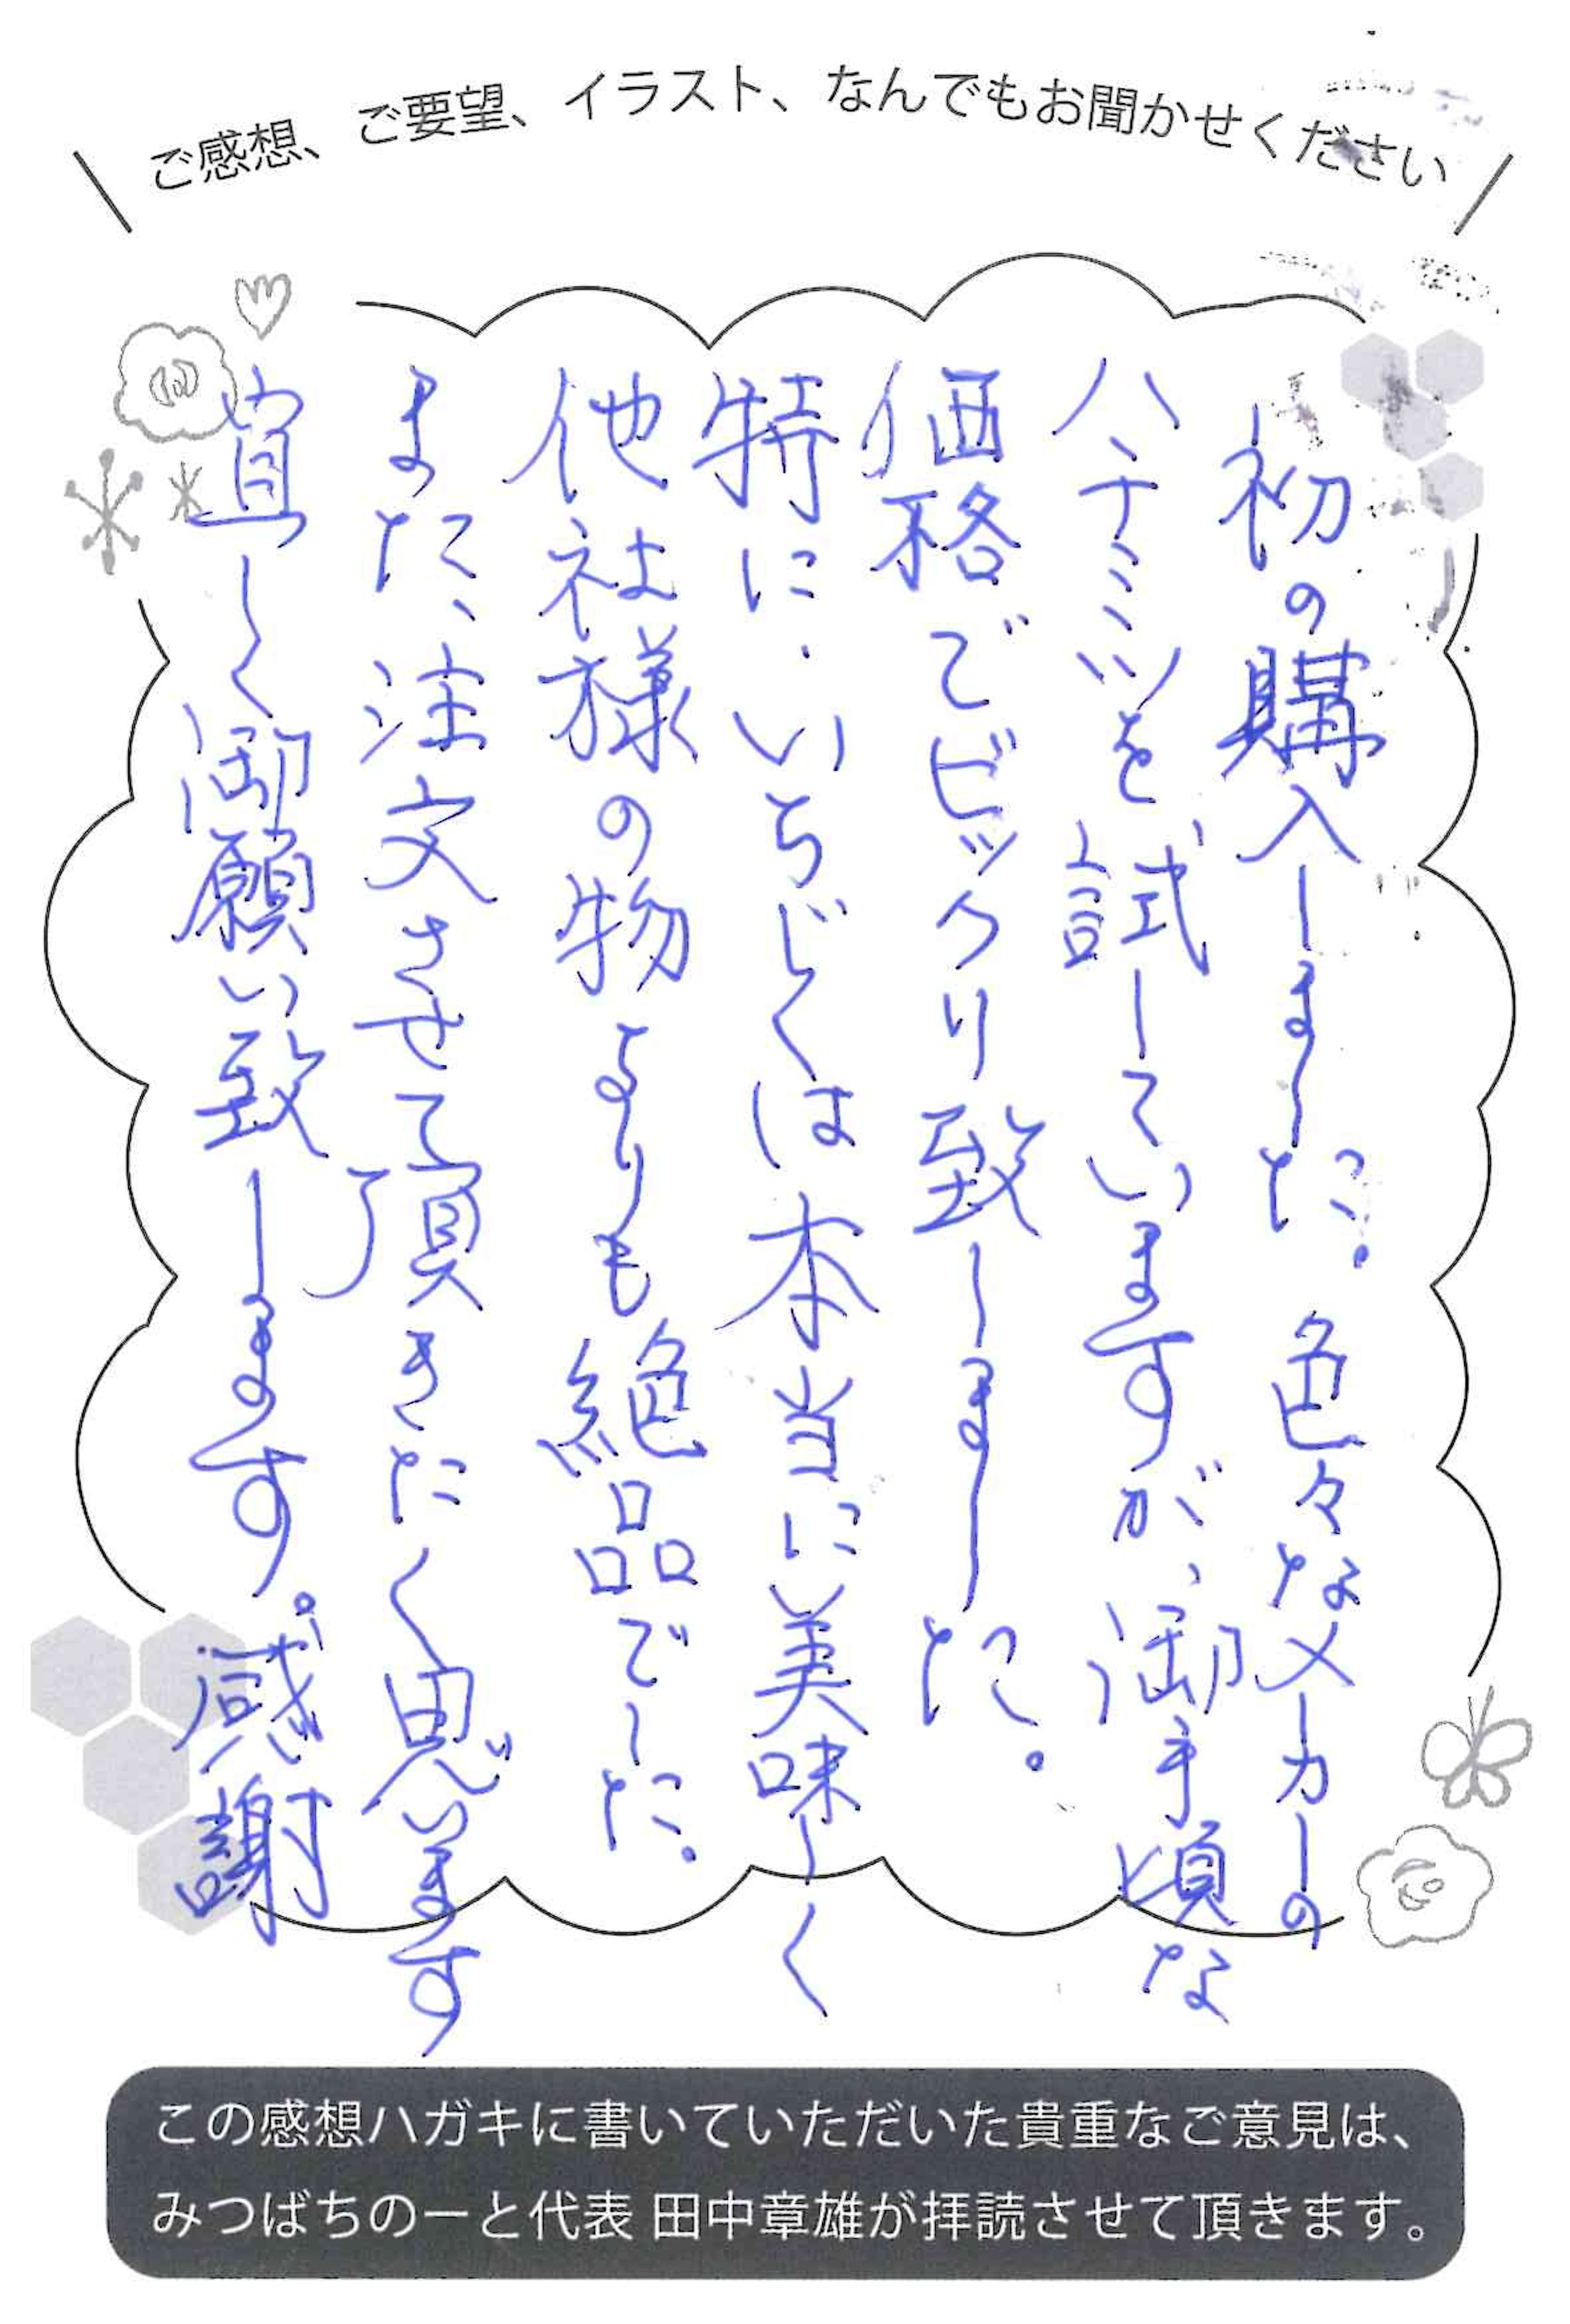 ご感想、ご要望、イラスト、なんでもお聞かせください
初の購入しました。色々なメーカーの
ハチミツを試していますが、御手頃な
価格でビックリ致しました。
特に、いちじくは本当に美味しく
他社様の物よりも絶品でした。
また、注文させて頂きたく思います
宜しく御願い致します。感謝
この感想ハガキに書いていただいた貴重なご意見は、
みつばちのーと代表 田中章雄が拝読させて頂きます。